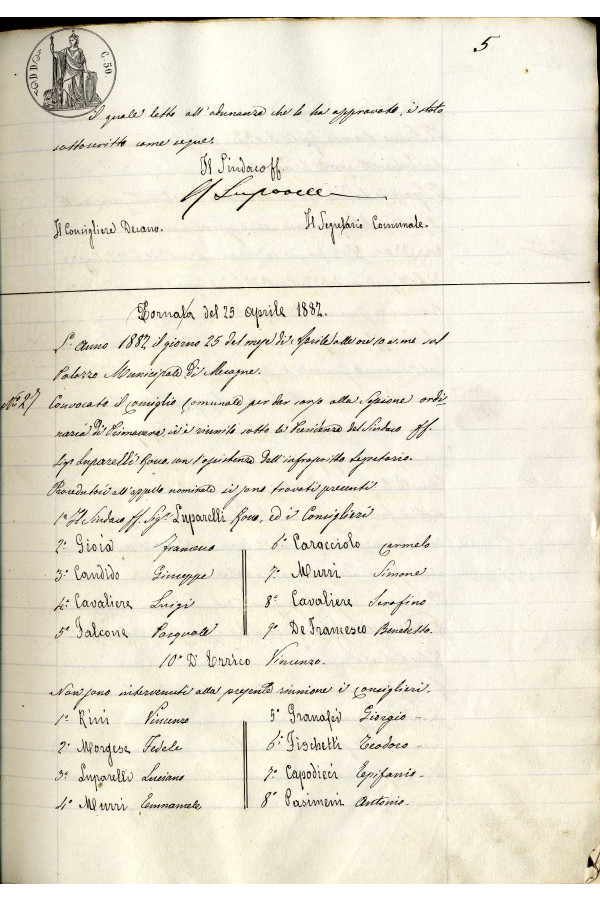 5
C. 50
Il quale letto all'adunanza che lo ha approvato, è stato
sottoscritto come segue.
Il Sindaco ff.
Il Consigliere Decano. Il Segretario Comunale.
Tornata del 25 aprile 1882.
L'Anno 1882 il giorno 25 del mese di Aprile alle ore 10 a. me sul
Palazzo Municipale di Mesagne.
Convocato il consiglio Comunale per dar corso alla Sessione ordi
naria di Primavera, si è riunito sotto la Presidenza del Sindaco ff.
Sigr Luparelli Roco, con l'assistenza dell'infrascritto Segretario.
Procedutosi all'appello nominale si sono trovati presenti
1° Il Sindaco ff. Sigr Luparelli Roco, ed i Consiglieri
2° Gioia Francesco 6° Caracciolo Carmelo
3° Candido Giuseppe 7° Murri Simone
4° Cavaliere Luigi 8° Cavaliere Serafino
5° Falcone Pasquale 9° De Francesco Benedetto
10° D'Errico Vincenzo.
Non sono intervenuti alla presente riunione i consiglieri.
1° Rini Vincenzo 5° Granafei Giorgio
2° Morgese Fedele 6° Fischetti Teodoro
3° Luparelli Luciano 7° Capodieci Epifanio
4° Murri Emmanuele 8° Pasimeni Antonio